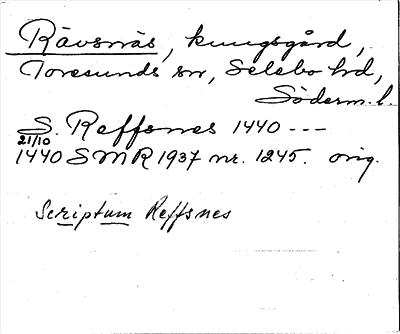 Rävsnäs, kungsgård,
Toresunds sn, Selebo hd,
Söderm. l.
S. Reffsnes 1440 ---
21/10
1440 SMR 1937 nr. 1245. orig.
Scriptum Reffsnes